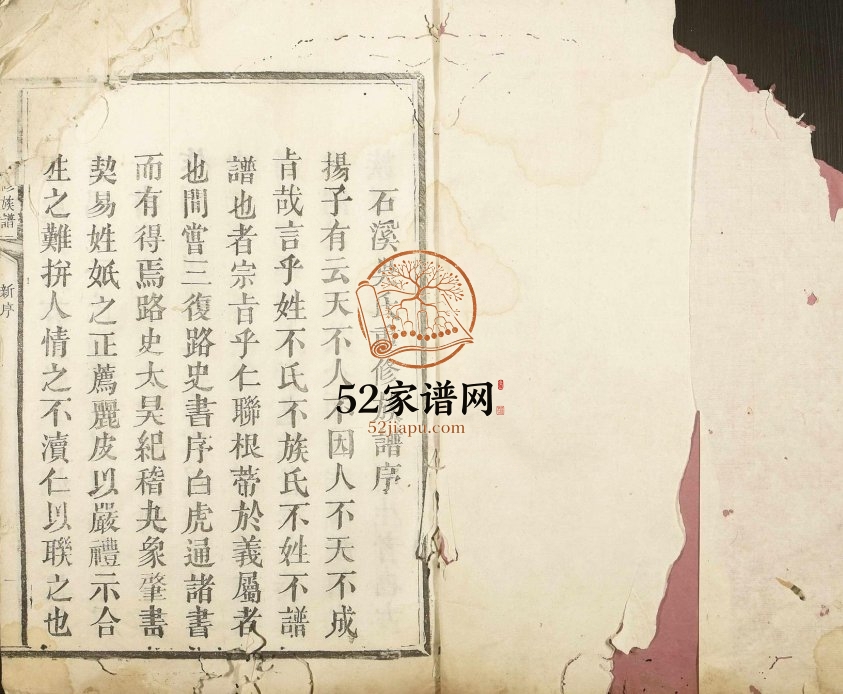 石溪吳氏重修族譜序
揚子有云天不人不因人不天不成
㫖哉言乎姓不氏不族氏不姓不譜
譜也者宗㫖乎仁聯根蒂於義屬者
也間嘗三復路史書序白虎通諸書
而有得焉路史太昊紀稽夬象肇書
契易姓之正薦麗皮以嚴禮示合
姓之難拚人情之不瀆仁以聯之也
修族譜
新序
52家谱网
52jiapu.com